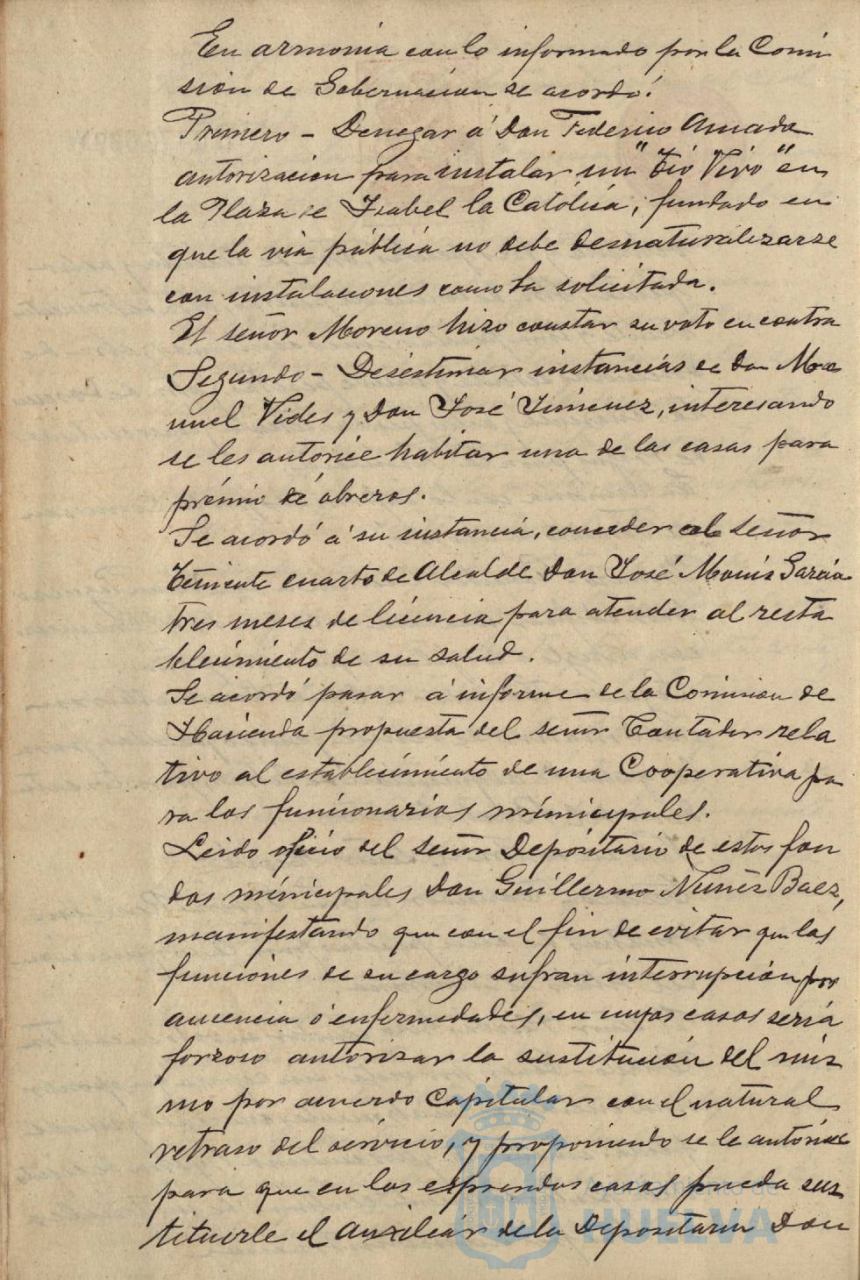 En armonia con lo informado por la Comi
sión de Gobernacion se acordó:
Primero - Denegar á Don Federico Amada
autorizacion para instalar un "Tio Vivo" en
la Plaza de Isabel la Católica, fundado en
que la via pública no debe desnaturalizarse
con instalaciones como la solicitada.
El señor Moreno hizo constar su voto en contra
Segundo - Desestimar instancias de Don Ma
nuel Vides y Don José Jimenez, interesando
se les autorice habitar una de las casas para
prémio de obreros.
Se acordó á su instancia, conceder al Señor
Teniente cuarto de Alcalde Don José Monís García
tres meses de licencia para atender al resta
blecimiento de su salud.
Se acordó pasar á informe de la Comision de
Hacienda propuesta del señor Contador rela
tivo al establecimiento de una Cooperativa pa
ra los funcionarios municipales.
Leido oficio del señor Depositario de estos fon
dos municipales Don Guillermo Nuñez Baez,
manifestando que con el fin de evitar que las
funciones de su cargo sufran interrupción por
ausencia ó enfermedades, en cuyos casos sería
forzoso autorizar la sustitución del mis
mo por acuerdo Capitular con el natural
retraso del servicio, y proponiendo se le autorice
para que en los expresados casos pueda sus
tituirle el Auxiliar de la Depositaria Don
HUELVA